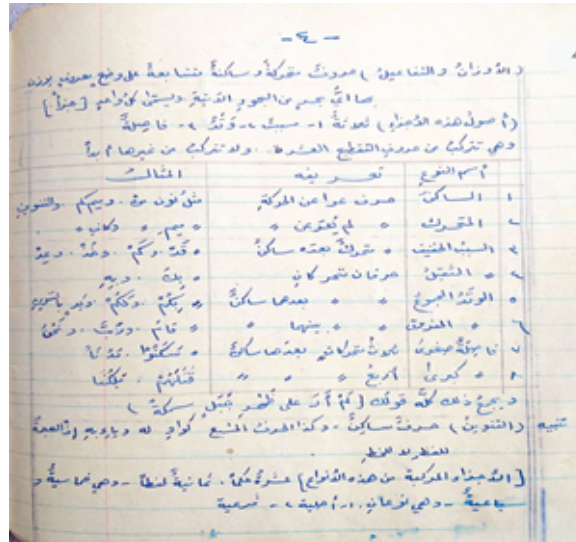 - ٤ -
(الأوزان والتفاعيل) حروف متحركة وساكنة متتابعة على وضع معروف يوزن
بها أي بحر من البحور الآتية ويسمى كل واحد [جزأ]
(أصول هذه الأجزاء) ثلاثة ١- سبب ٢- وتد ٣- فاصلة
وهي تتركب من حروف التقطيع العشرة. ولا تتركب من غيرها أبدا
اسم النوع تعريفه المثال
١ الساكن حرف عرا عن الحركة مثل نون من. وميم كم. والتنوين
٢ المتحرك " لم يعر عن " " ميم " وكاف "
٣ السبب الخفيف " متحرك بعده ساكن " قد. وكم. وخذ.
٤ " الثقيل حرفان متحركان " بك. وبه
٥ الوتد المجموع " " بعدهما ساكن " بكم. ولكم.
٦ " المفروق " " بينهما " " قام.
٧ فاصلة صغرى ثلاث متحركات بعدها ساكن " سكنوا.
٨ " كبرى أربع " " " قتلهم.
ويجمع ذلك كله قولك (لم أر على ظهر جبل سمكة)
تنبيه (التنوين) حرف ساكن. وكذا الحرف المشبع كواو له وياء به إذ العبرة
للفظ لا للخط
[الأجزاء المركبة من هذه الأنواع] عشرة حكما. ثمانية لفظا - وهي خماسية و
سباعية - وهي نوعان. ١- أصلية ٢- فرعية